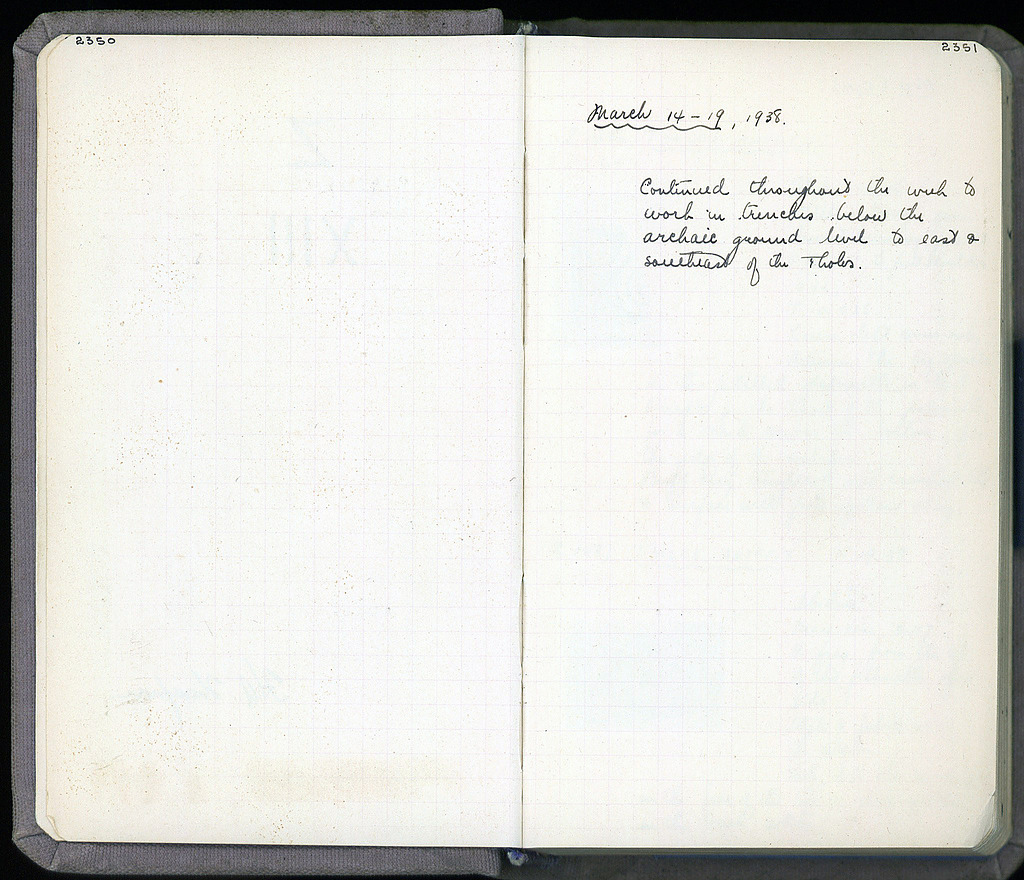 2350
2351
March 14-19, 1938.
Continued throughout the week to
work in trenches below the
archaic ground level to east &
southeast of the Tholos.